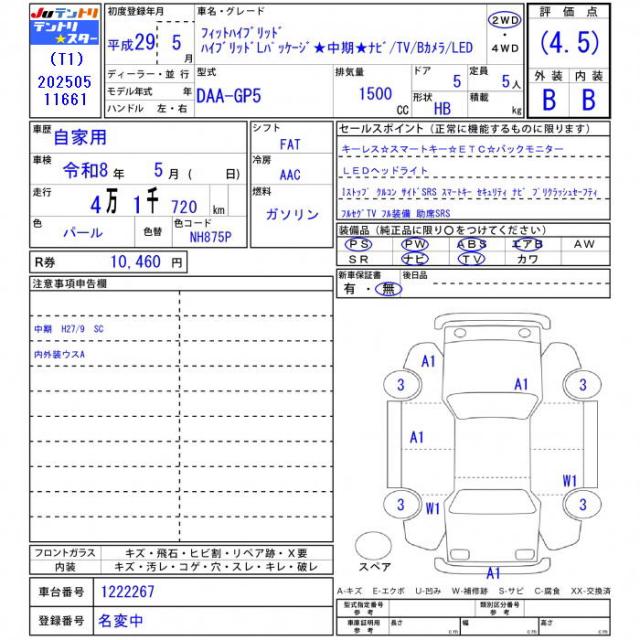 Juテントリ
テントリ
★スター
(T1)
202505
11661
初度登録年月
平成29年 5月
ディーラー・並行
モデル年式 年
ハンドル 左・右
車名・グレード
フィットハイブリッド
ハイブリッドLパッケージ★中期★ナビ/TV/Bカメラ/LED
2WD
・
4WD
型式
DAA-GP5
排気量
1500
CC
ドア
5
定員
5人
形状
HB
積載
kg
評価点
(4.5)
外装 内装
B B
車歴
自家用
車検
令和8年 5月( 日)
走行
4万 1千 720 km
色
パール
色替
色コード
NH875P
シフト
FAT
冷房
AAC
燃料
ガソリン
セールスポイント(正常に機能するものに限ります)
キーレス☆スマートキー☆ETC☆バックモニター
LEDヘッドライト
Iストップ クルコン サイドSRS スマートキー セキュリティ ナビ プリクラッシュセーフティ
フルセグTV フル装備 助席SRS
装備品(純正品に限り○をつけてください)
PS PW ABS エアB AW
SR ナビ TV カワ
R券 10,460 円
新車保証書
有・無
後日品
注意事項申告欄
中期 H27/9 SC
内外装ウスA
A1
A1
3
3
A1
W1
3
W1
3
A1
スペア
フロントガラス
キズ・飛石・ヒビ割・リペア跡・X要
内装
キズ・汚レ・コゲ・穴・スレ・キレ・破レ
車台番号
1222267
登録番号
名変中
A-キズ E-エクボ U-凹み W-補修跡 S-サビ C-腐食 XX-交換済
型式指定番号
参考
類別区分番号
参考
車庫証明用
参考
長さ
cm
幅
cm
高さ
cm